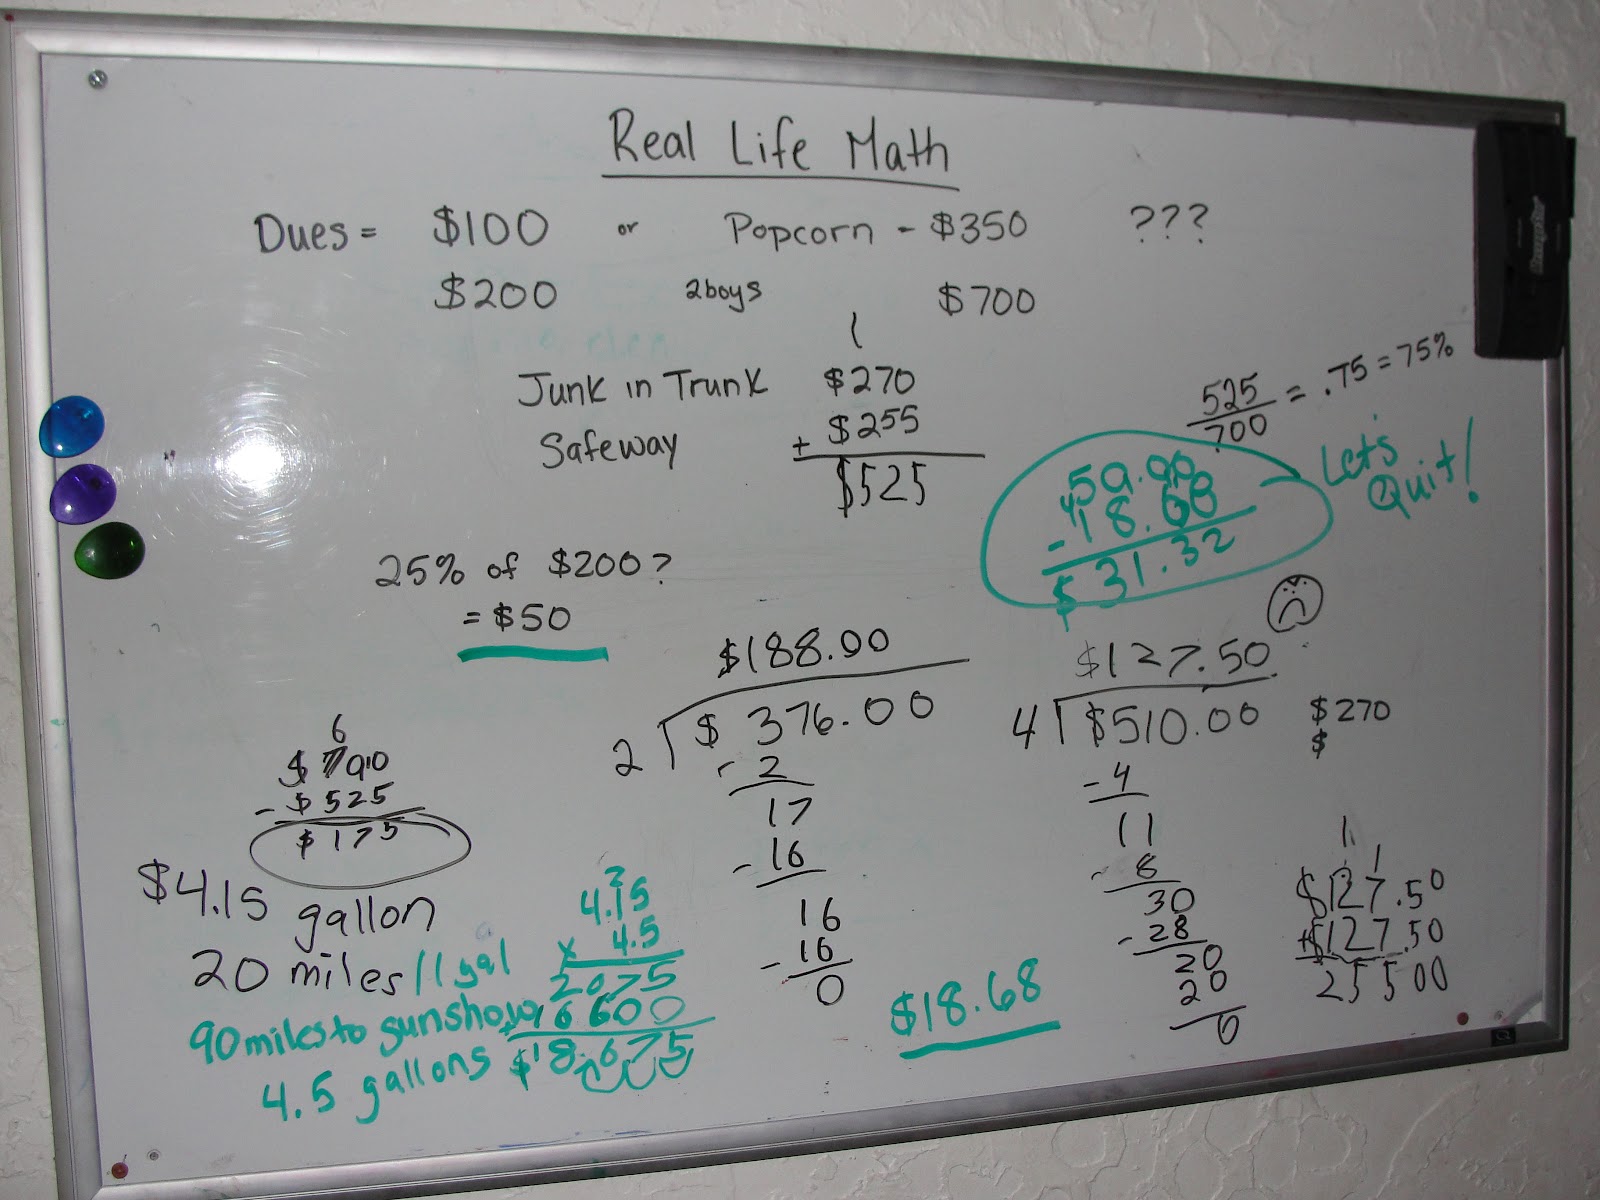 Real Life Math
Dues = $100 or Popcorn - $350 ???
$200 2boys $700
1
Junk in Trunk $270
Safeway + $255
$525
525 = .75 = 75%
700
50.00
4
- 18.68
$31.32
Let's
Quit!
25% of $200?
= $50
6
$700
- $525
$175
$188.00
2 $376.00
- 2
17
- 16
16
- 16
0
$127.50
4 $510.00
- 4
11
- 8
30
- 28
20
20
0
$270
$
1 1
$127.50
+$127.50
25500
$4.15 gallon
20 miles/1gal
90miles to gunshow
4.5 gallons
2
4.15
x 4.5
2075
+16600
$18.675
$18.68